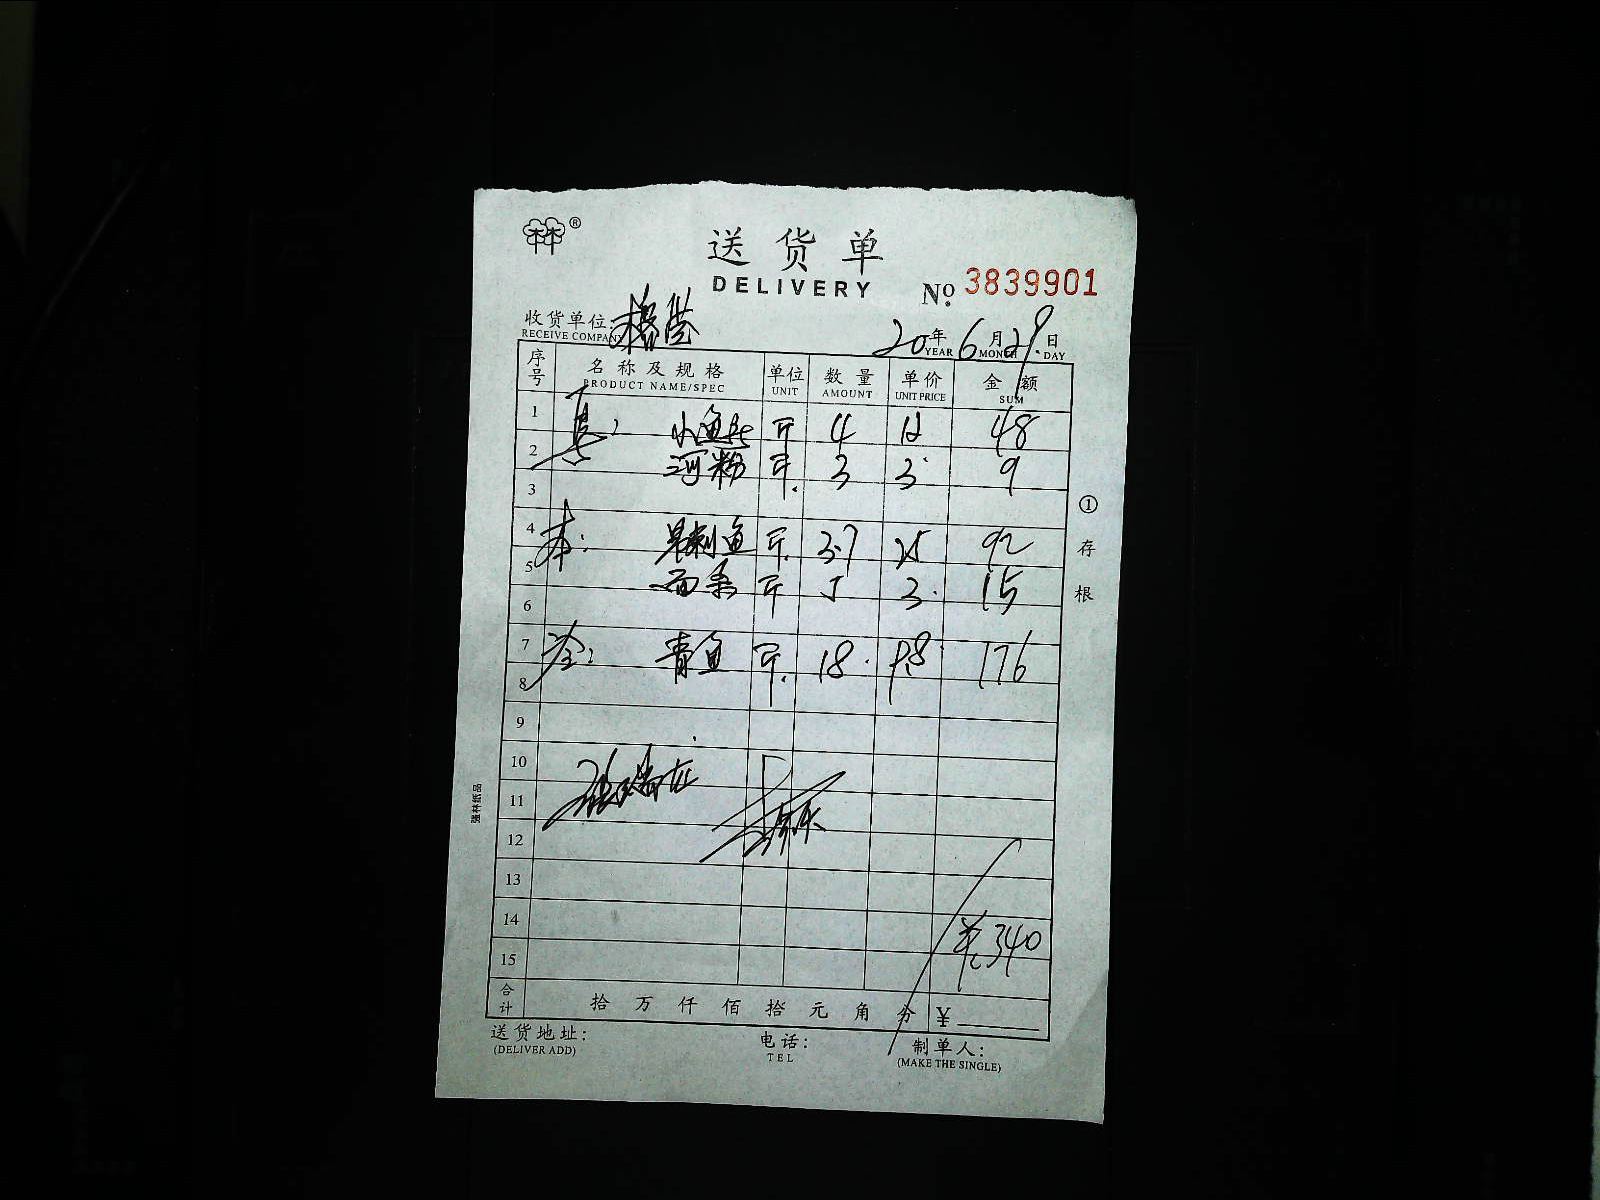 林林®
送货单
DELIVERY
No. 3839901
收货单位:
RECEIVE COMPANY
20年6月29日
YEAR MONTH DAY
序号 名称及规格 单位 数量 单价 金额
PRODUCT NAME/SPEC UNIT AMOUNT UNIT PRICE SUM
1 小鱼 斤 4 12 48
2 河粉 斤 3 3 9
3
4 本: 鱼 斤 3.7 25 92
5 斤 5 3 15
6
7 青鱼 斤 18 9.8 176
8
9
10
11
12
13
14 ¥340
15
合计 拾 万 仟 佰 拾 元 角 分 ¥
送货地址:
(DELIVER ADD)
电话:
TEL
制单人:
(MAKE THE SINGLE)
①存根
强林纸品